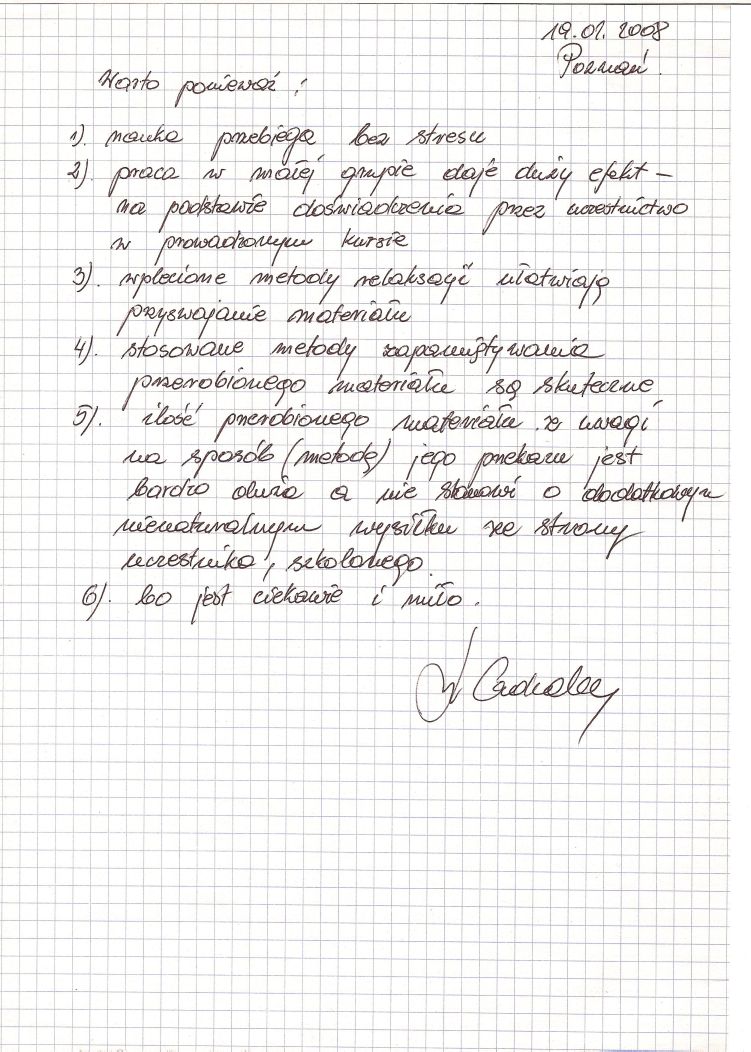 19.01.2008
Poznań.
Warto ponieważ :
1). nauka przebiega bez stresu
2). praca w małej grupie daje duży efekt –
na podstawie doświadczenia przez uczestnictwo
w prowadzonym kursie
3). wplecione metody relaksacji ułatwiają
przyswajanie materiału
4). stosowane metody zapamiętywania
przerobionego materiału są skuteczne
5). ilość przerobionego materiału z uwagi
na sposób (metodę) jego przekazu jest
bardzo duża a nie stanowi o dodatkowym
nienaturalnym wysiłku ze strony
uczestnika, szkolonego
6). bo jest ciekawie i miło.